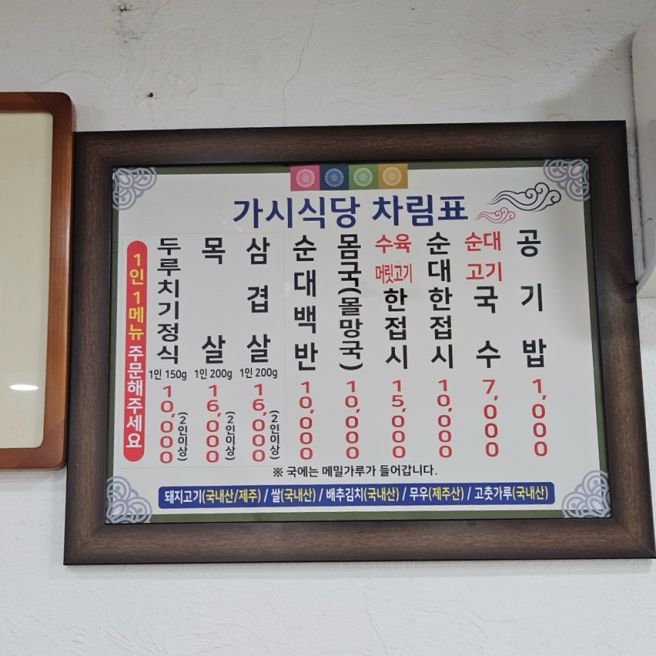 가시식당 차림표
1인 1메뉴 주문해주세요
두루치기정식 1인 150g 10,000 (2인이상)
목살 1인 200g 16,000 (2인이상)
삼겹살 1인 200g 16,000 (2인이상)
순대백반 10,000
몸국(몰망국) 10,000
수육 머릿고기 한접시 15,000
순대한접시 10,000
순대 고기 국수 7,000
공기밥 1,000
※ 국에는 메밀가루가 들어갑니다.
돼지고기(국내산/제주) / 쌀(국내산) / 배추김치(국내산) / 무우(제주산) / 고춧가루(국내산)